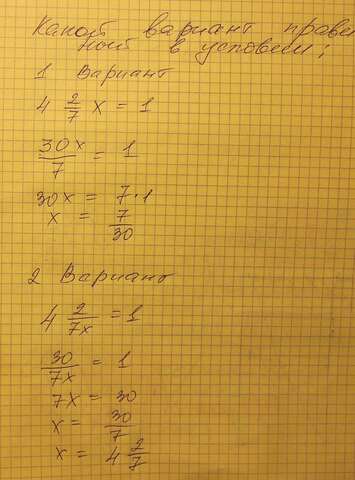 Какой вариант праве
ной в условеии;
1 Вариант
4 2/7 x = 1
30x/7 = 1
30x = 7·1
x = 7/30
2 Вариант
4 2/7x = 1
30/7x = 1
7x = 30
x = 30/7
x = 4 2/7